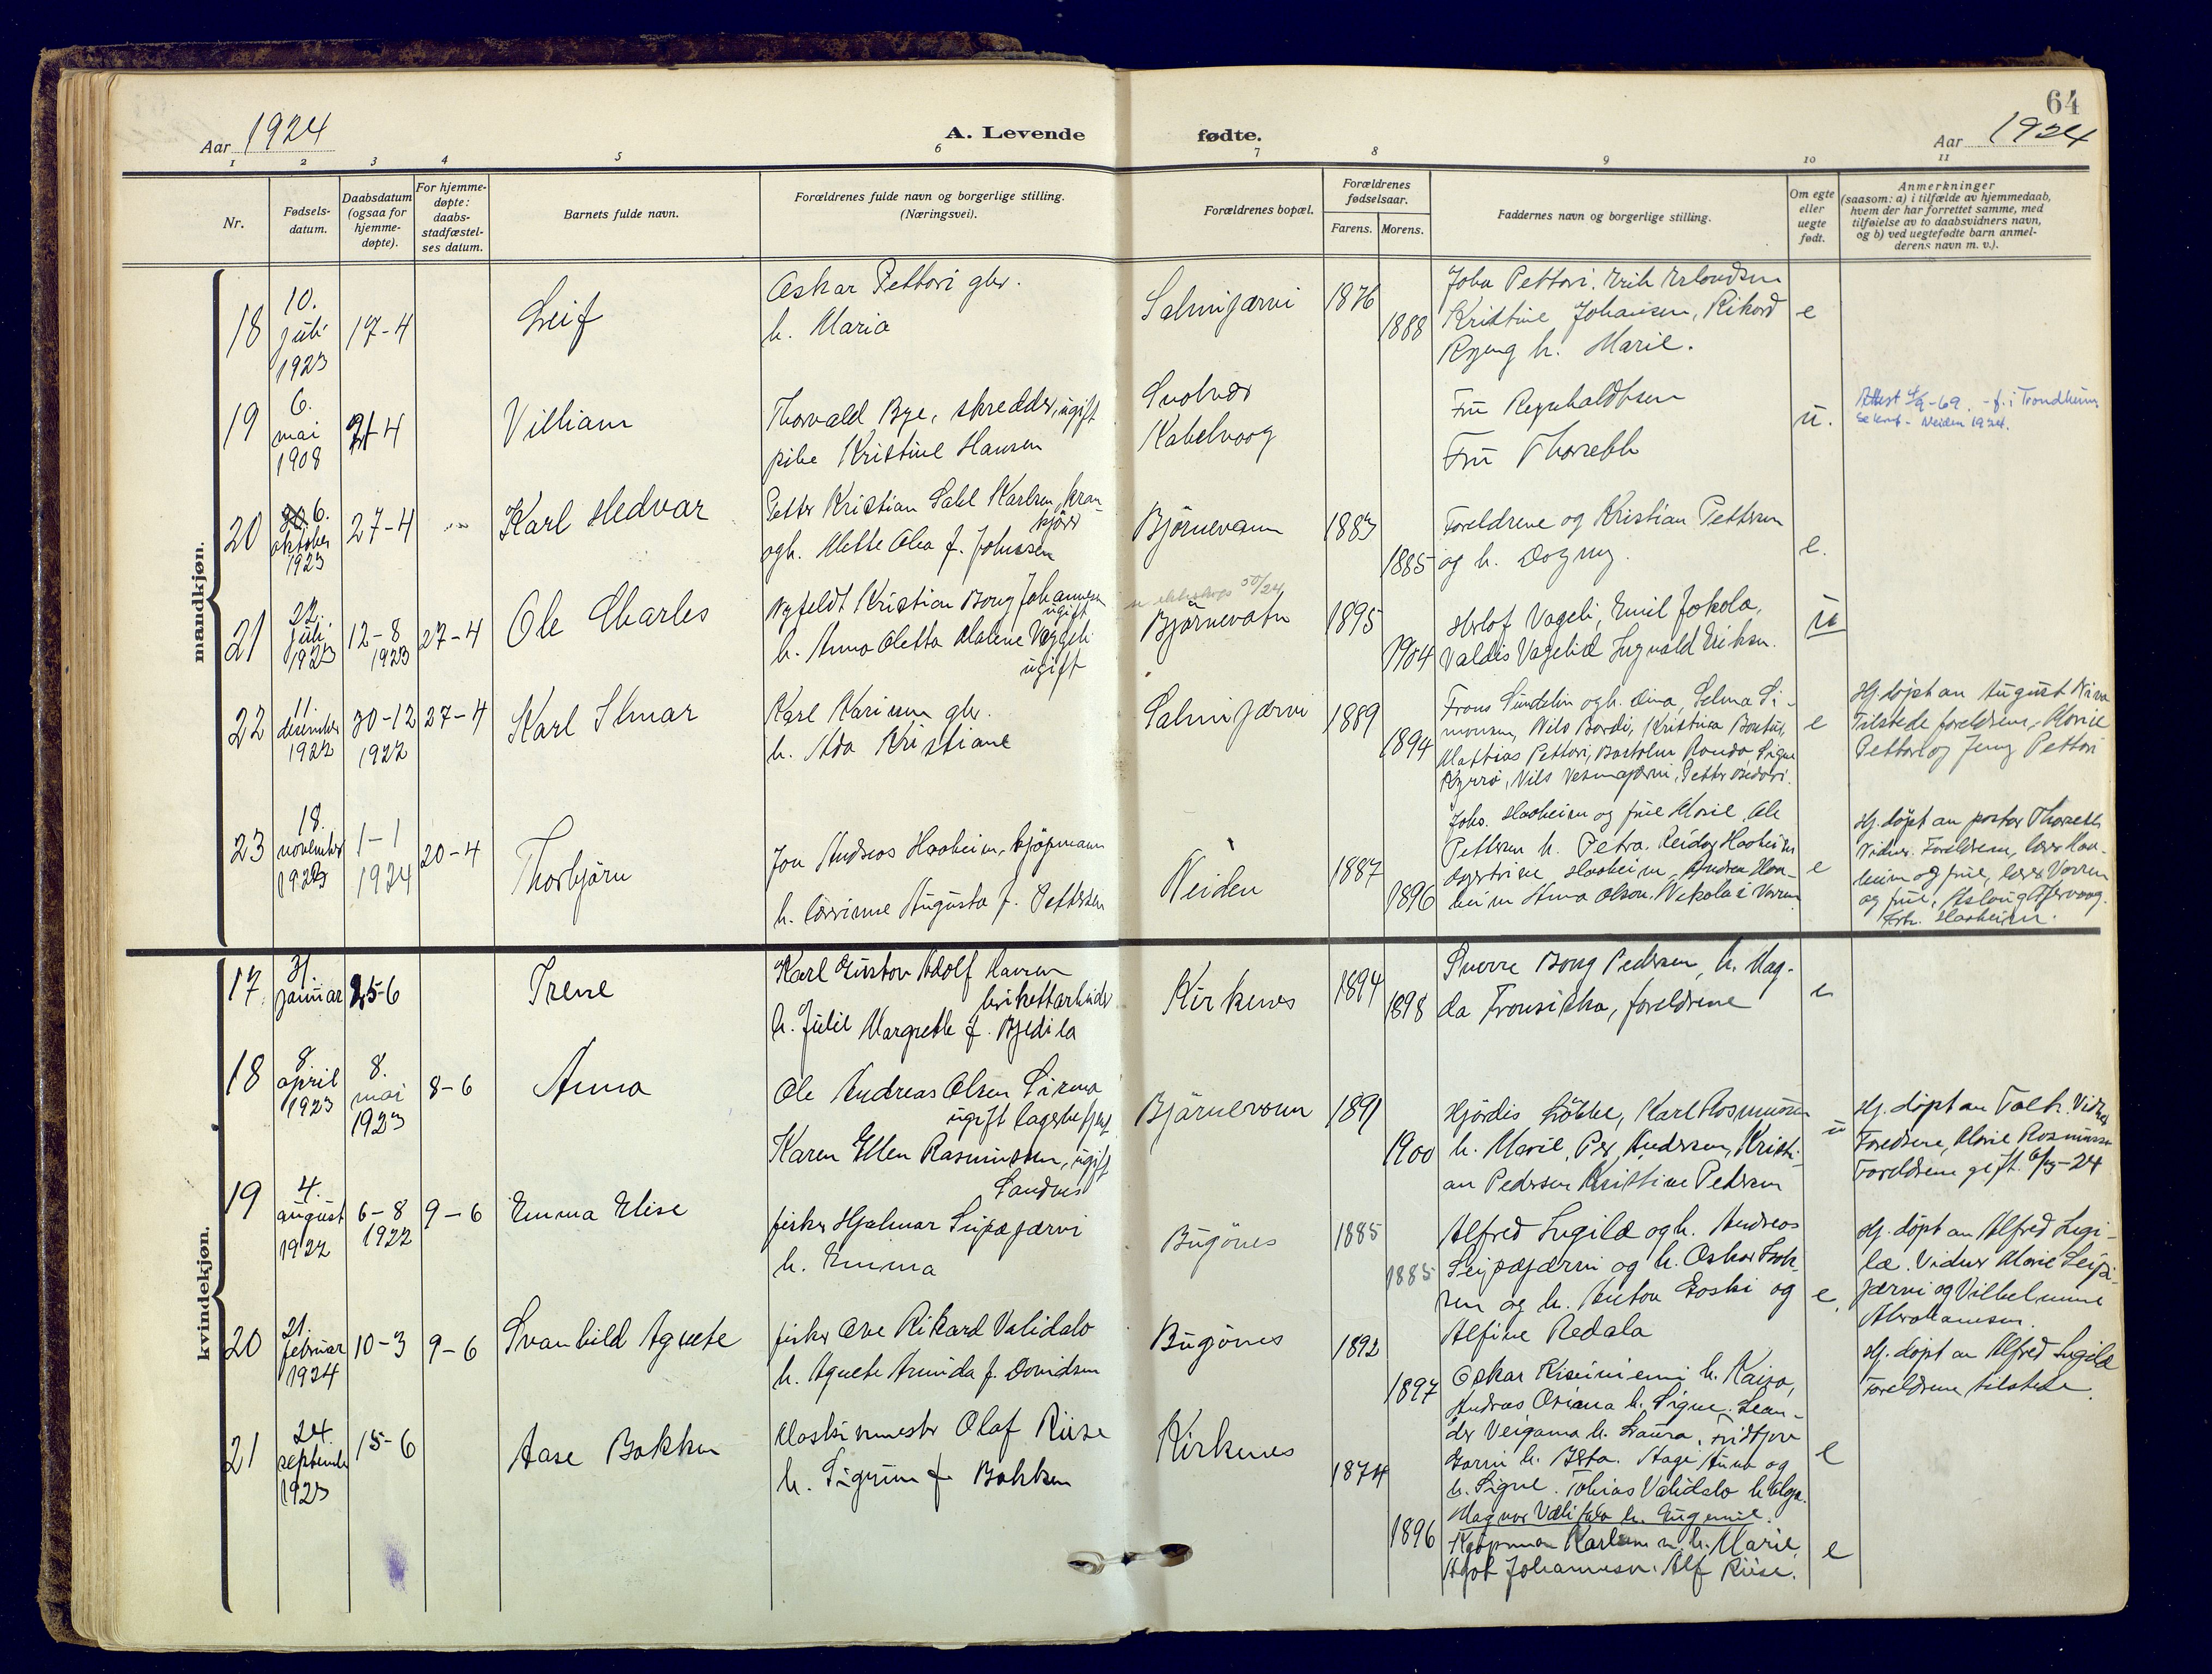 64
Aar 1924
A. Levende fødte.
Aar 1924
1 2 3 4 5 6 7 8 9 10 11
Nr.
Fødsels-
datum.
Daabsdatum
(ogsaa for
hjemme-
døpte).
For hjemme-
døpte:
daabs-
stadfæstel-
ses datum.
Barnets fulde navn.
Forældrenes fulde navn og borgerlige stilling.
(Næringsvei).
Forældrenes bopæl.
Forældrenes
fødselsaar.
Farens. Morens.
Faddernes navn og borgerlige stilling.
Om egte
eller
uegte
født.
Anmerkninger
(saasom: a) i tilfælde av hjemmedaab,
hvem der har forrettet samme, med
tilføielse av to daabsvidners navn,
og b) ved uegtefødte barn anmel-
derens navn m. v.).
mandkjøn.
18
10.
juli
1923
17-4
Leif
Oskar Pettori gbr.
h. Maria
Salmijærvi
1876
1888
John Pettori. Erik Erlandsen
Kristine Johansen, Rikard
Ryeng h. Marie.
e
19
6.
mai
1908
21-4
Villiam
Thorvald Bye, skredder, ugift
pike Kristine Hansen
Svolvær
Kabelvaag
Fru
Fru Thorseth
u.
Attest -69. - f. i Trondheim
Neiden 1924.
20
6.
oktober
1923
27-4
Karl Hedvar
Petter Kristian Karlsen, kran-
kjører
og h. Mette Olea f. Johnsen
Björnevann
1883
1885
Foreldrene og Kristian Pettersen
og h. Dagny.
e.
21
22.
juli
1923
12-8
1923
27-4
Ole Charles
Nyfeldt Kristian Bong Johannesen
ugift
h. Anna Oletta Malene Vaggeli
ugift
50/24
Björnevatn
1895
1904
Herlof Vageli, Emil Jokola,
Valdis Vageli Ingvald Eriksen.
u
22
11.
desember
1922
30-12
1922
27-4
Karl Ilmar
Karl gbr.
h. Ada Kristiane
Salmijærvi
1889
1894
Frans Sundelin og h. Dina, Selma Si-
monsen, Nils Bordi, Kristina
Mathias Pettori, Signe
Nils Petter
e
Hj. døpt av August Niva
Tilstede foreldrene, Marie
Pettori og Jenny Pettori
23
18.
november
1923
1-1
1924
20-4
Thorbjørn
Jon Andreas Haaheim, kjøpmann
h. Augusta f. Pettersen
Neiden
1887
1896
Johs. Haaheim og frue Marie, Ole
Pettersen h. Petra. Reidar Haaheim
Haaheim, Andrea Haa-
heim Anna Olsen. Nikolai
e
Hj. døpt av pastor Thorseth
Vidner. Foreldrene, lærer Haa-
heim og frue, lærer
og frue, Aslaug
Haaheim.
kvindekjøn.
17
31.
januar
25-6
Irene
Karl Gustav Adolf Hansen
brikettarbeider
h. Julie Margrethe f. Bjedila
Kirkenes
1894
1898
Sverre Bong Pedersen, h. Mag-
da Fransiska, foreldrene
e
18
8.
april
1923
8.
mai
1923
8-6
Anna
Ole Andreas Olsen Sirma
ugift
Karen Ellen Rasmussen, ugift
Sandnes
Björnevann
1891
1900
Hjördis Løkke, Karl Rasmussen
h. Marie, Per Andersen, Kristi-
an Pedersen Kristine Pedersen
u
Hj. døpt av Vidner
Foreldrene, Marie Rasmussen
Foreldrene gift. -24
19
4.
august
1922
6-8
1922
9-6
Emma Elise
fisker Hjalmar Seipæjærvi
h. Emma
Bugönes
1885
1885
Alfred Lugilæ og h. Andreas
Seipæjærvi og h. Oskar Isak-
sen og h. Anton og
Alfine Redala
e,
Hj. døpt av Alfred Lugi-
læ. Vidner Marie Seipæ-
jærvi og Vilhelmine
Abrahamsen.
20
21.
februar
1924
10-3
9-6
Svanhild Agnete
fisker Ove Rikard Validalo
h. Agnete Arnida f. Davidsen
Bugönes
1892
1897
Oskar Kiseiniemi h. Kaisa,
Andreas h. Signe. Lean-
der h. Laura, Fridtjov
h. Aage og
h. Signe. Tobias Validalo h. Olga.
Magnor h. Eugenie.
e
Hj. døpt av Alfred Lugilæ
Foreldrene tilstede.
21
24.
september
1923
15-6
Aase Bakken
Maskinmester Olaf Riise
h. Sigrun f. Bakken
Kirkenes
1874
1896
Kjøpmann Karlsen h. Marie,
Agot Johannesen. Alf Riise.
e